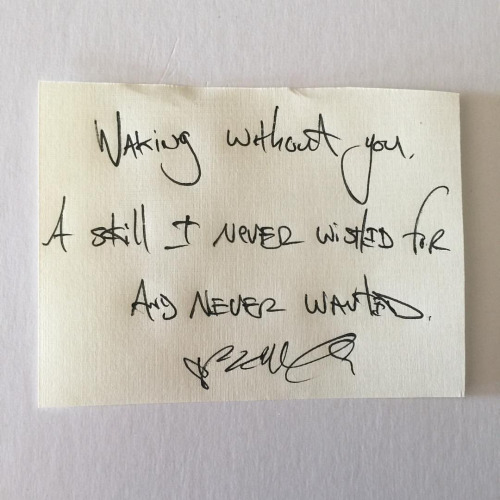 Waking without you.
A skill I never wished for
And never wanted.